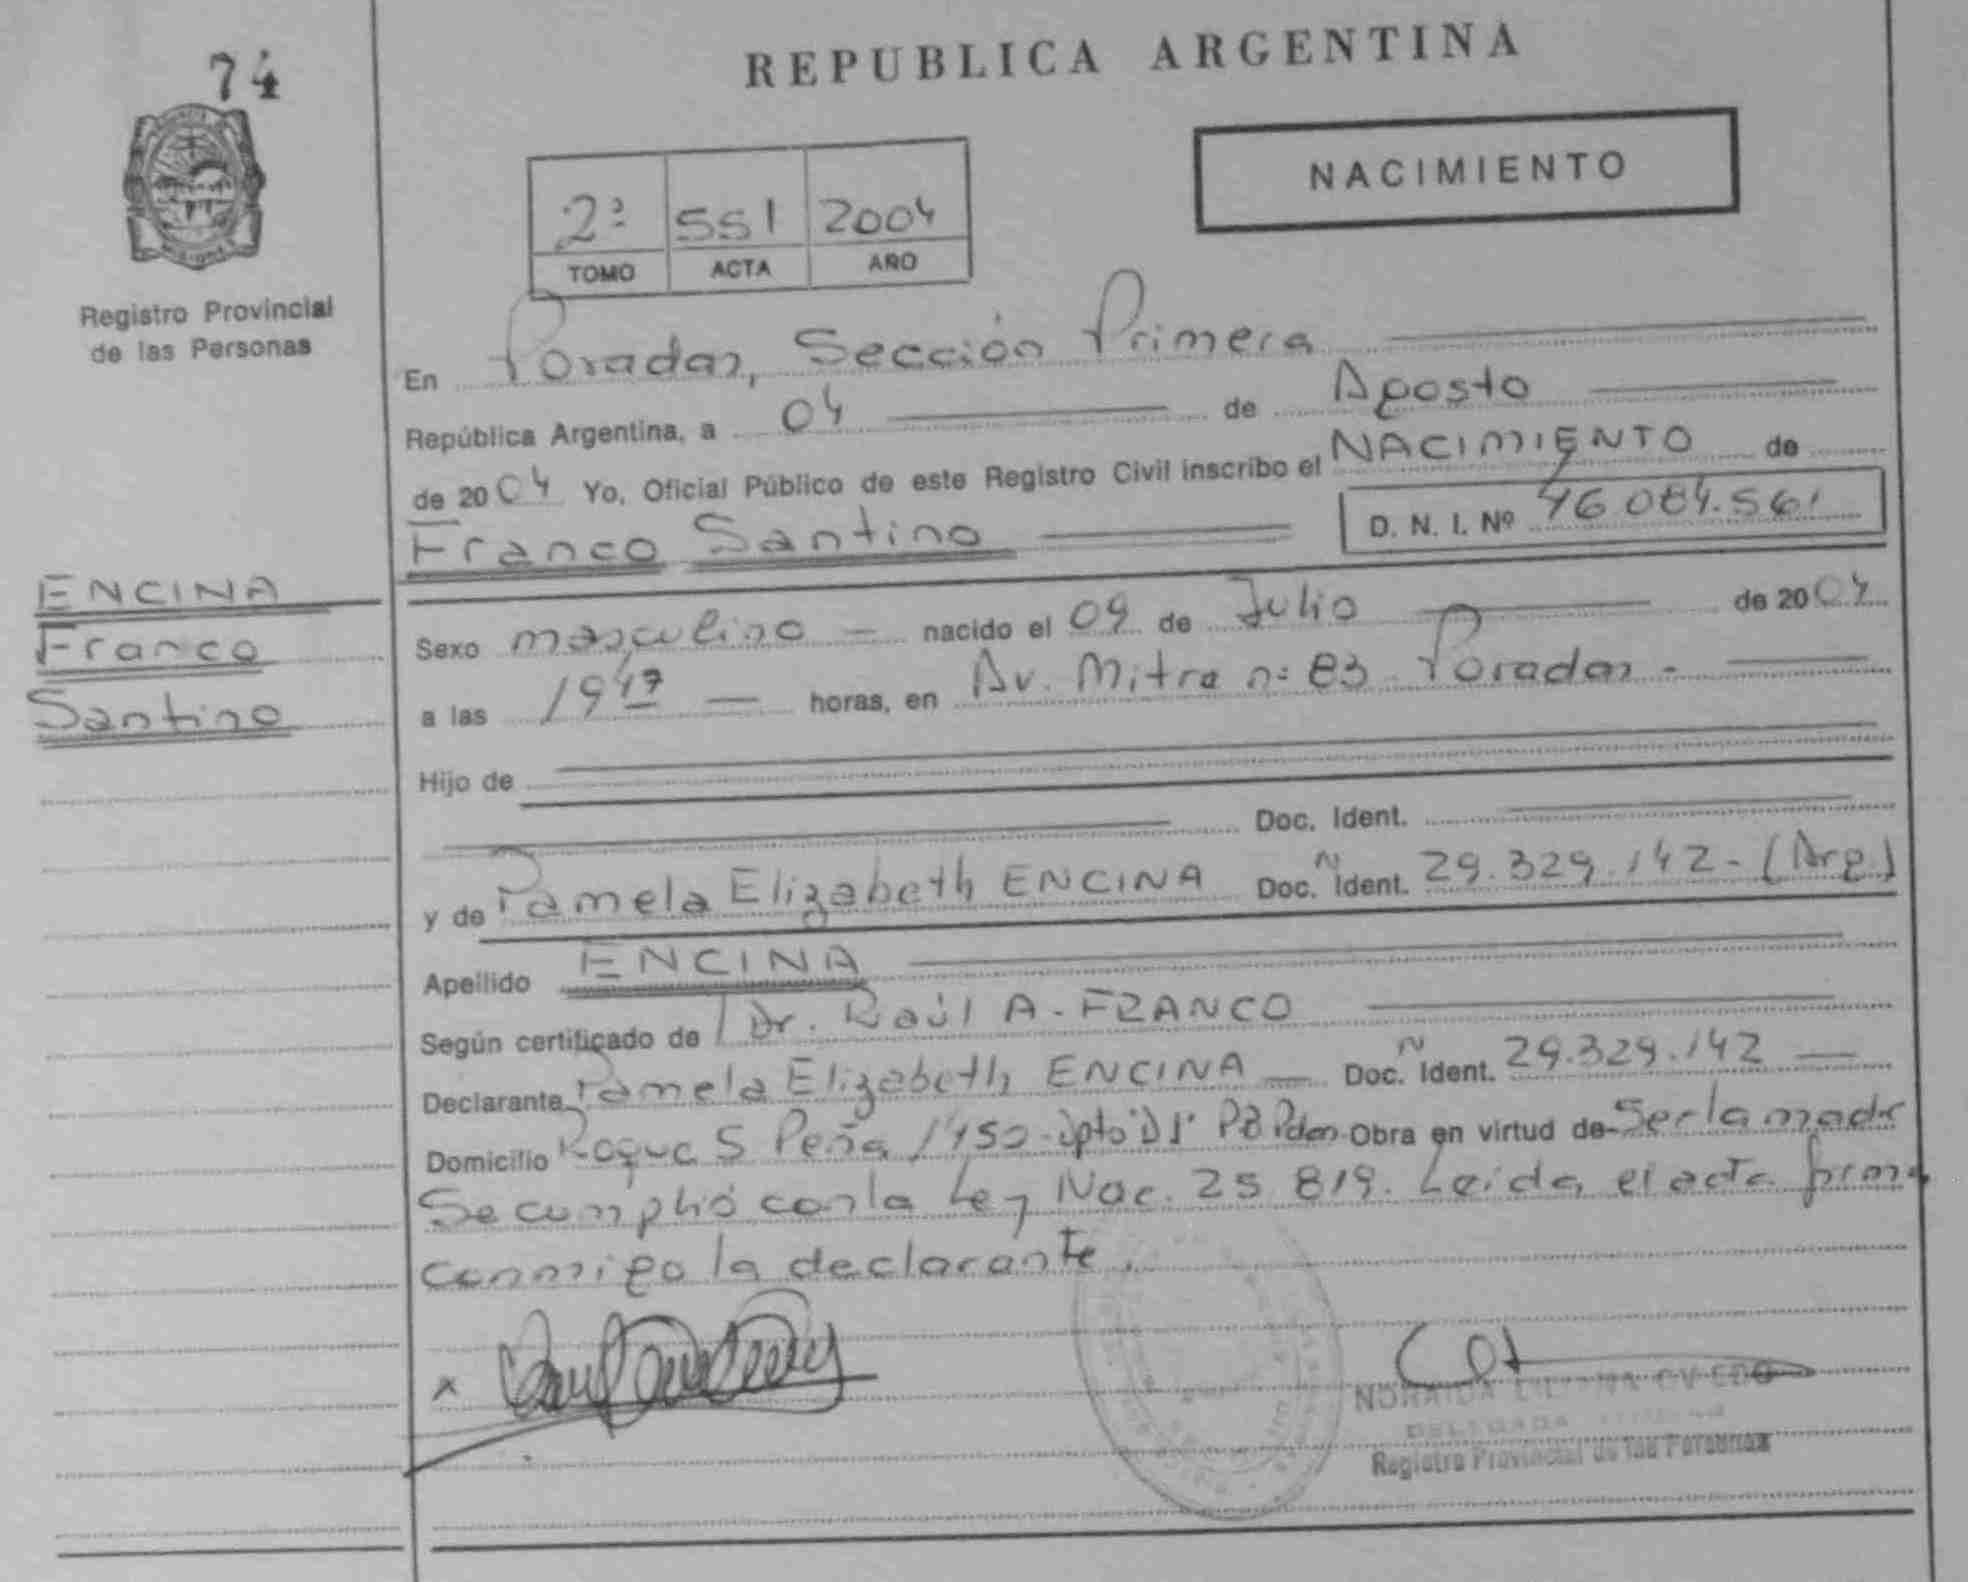 74
REPUBLICA ARGENTINA
NACIMIENTO
2ª 551 2004
TOMO ACTA AÑO
Registro Provincial
de las Personas
En Posadas, Sección Primera
República Argentina, a 04 de Agosto
de 2004 Yo, Oficial Público de este Registro Civil inscribo el NACIMIENTO de
Franco Santino D. N. I. Nº 46.084.561
ENCINA
Franco
Santino
Sexo masculino — nacido el 09 de Julio de 2004
a las 19 47 — horas, en Av. Mitre nº 83 - Posadas -
Hijo de
Doc. Ident.
y de Pamela Elizabeth ENCINA Doc. N Ident. 29.329.142 - (Arg.)
Apellido ENCINA
Según certificado de Dr. Raúl A. FRANCO
Declarante Pamela Elizabeth ENCINA — Doc. N Ident. 29.329.142 —
Domicilio Roque S Peña 1450 - dpto "D" PB Pdas Obra en virtud de Ser la madre
Se cumplió con la Ley Nac. 25 819. Leida el acta firma
conmigo la declarante.
x
OVIEDO
Registro Provincial de las Personas